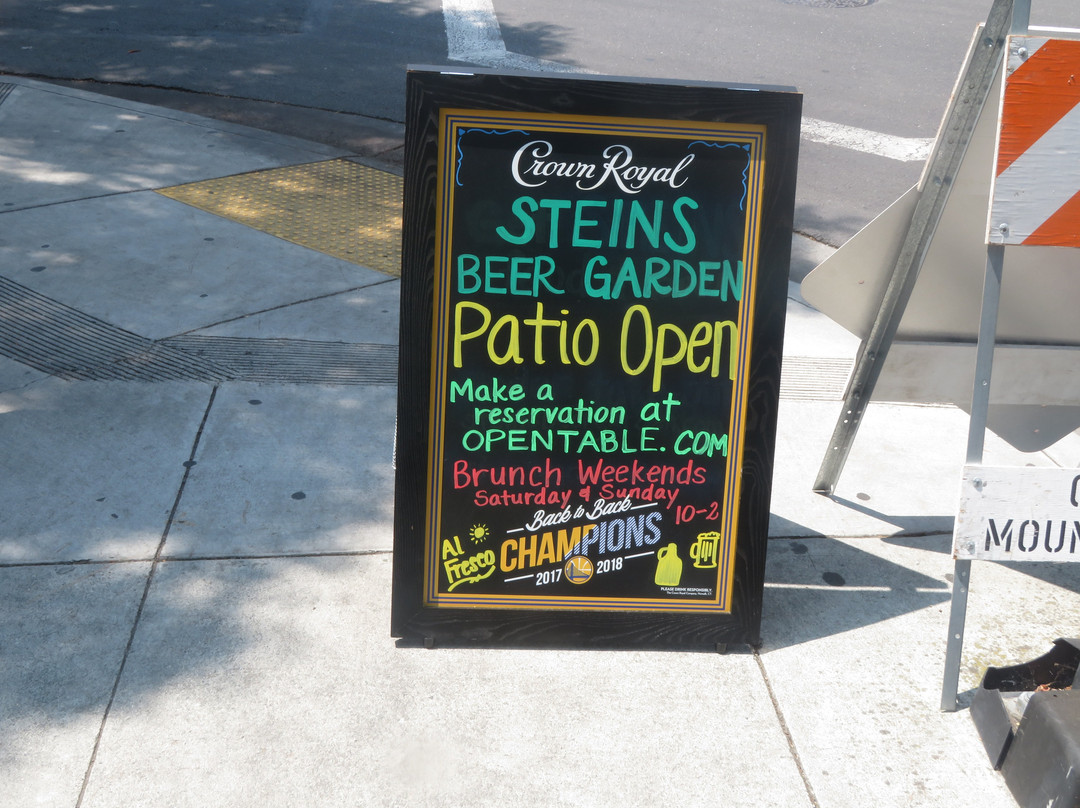 Crown Royal
STEINS
BEER GARDEN
Patio Open
Make a
reservation at
OPENTABLE.COM
Brunch Weekends
Saturday & Sunday
10-2
Back to Back
CHAMPIONS
2017 2018
Al
Fresco
PLEASE DRINK RESPONSIBLY.
MOUN